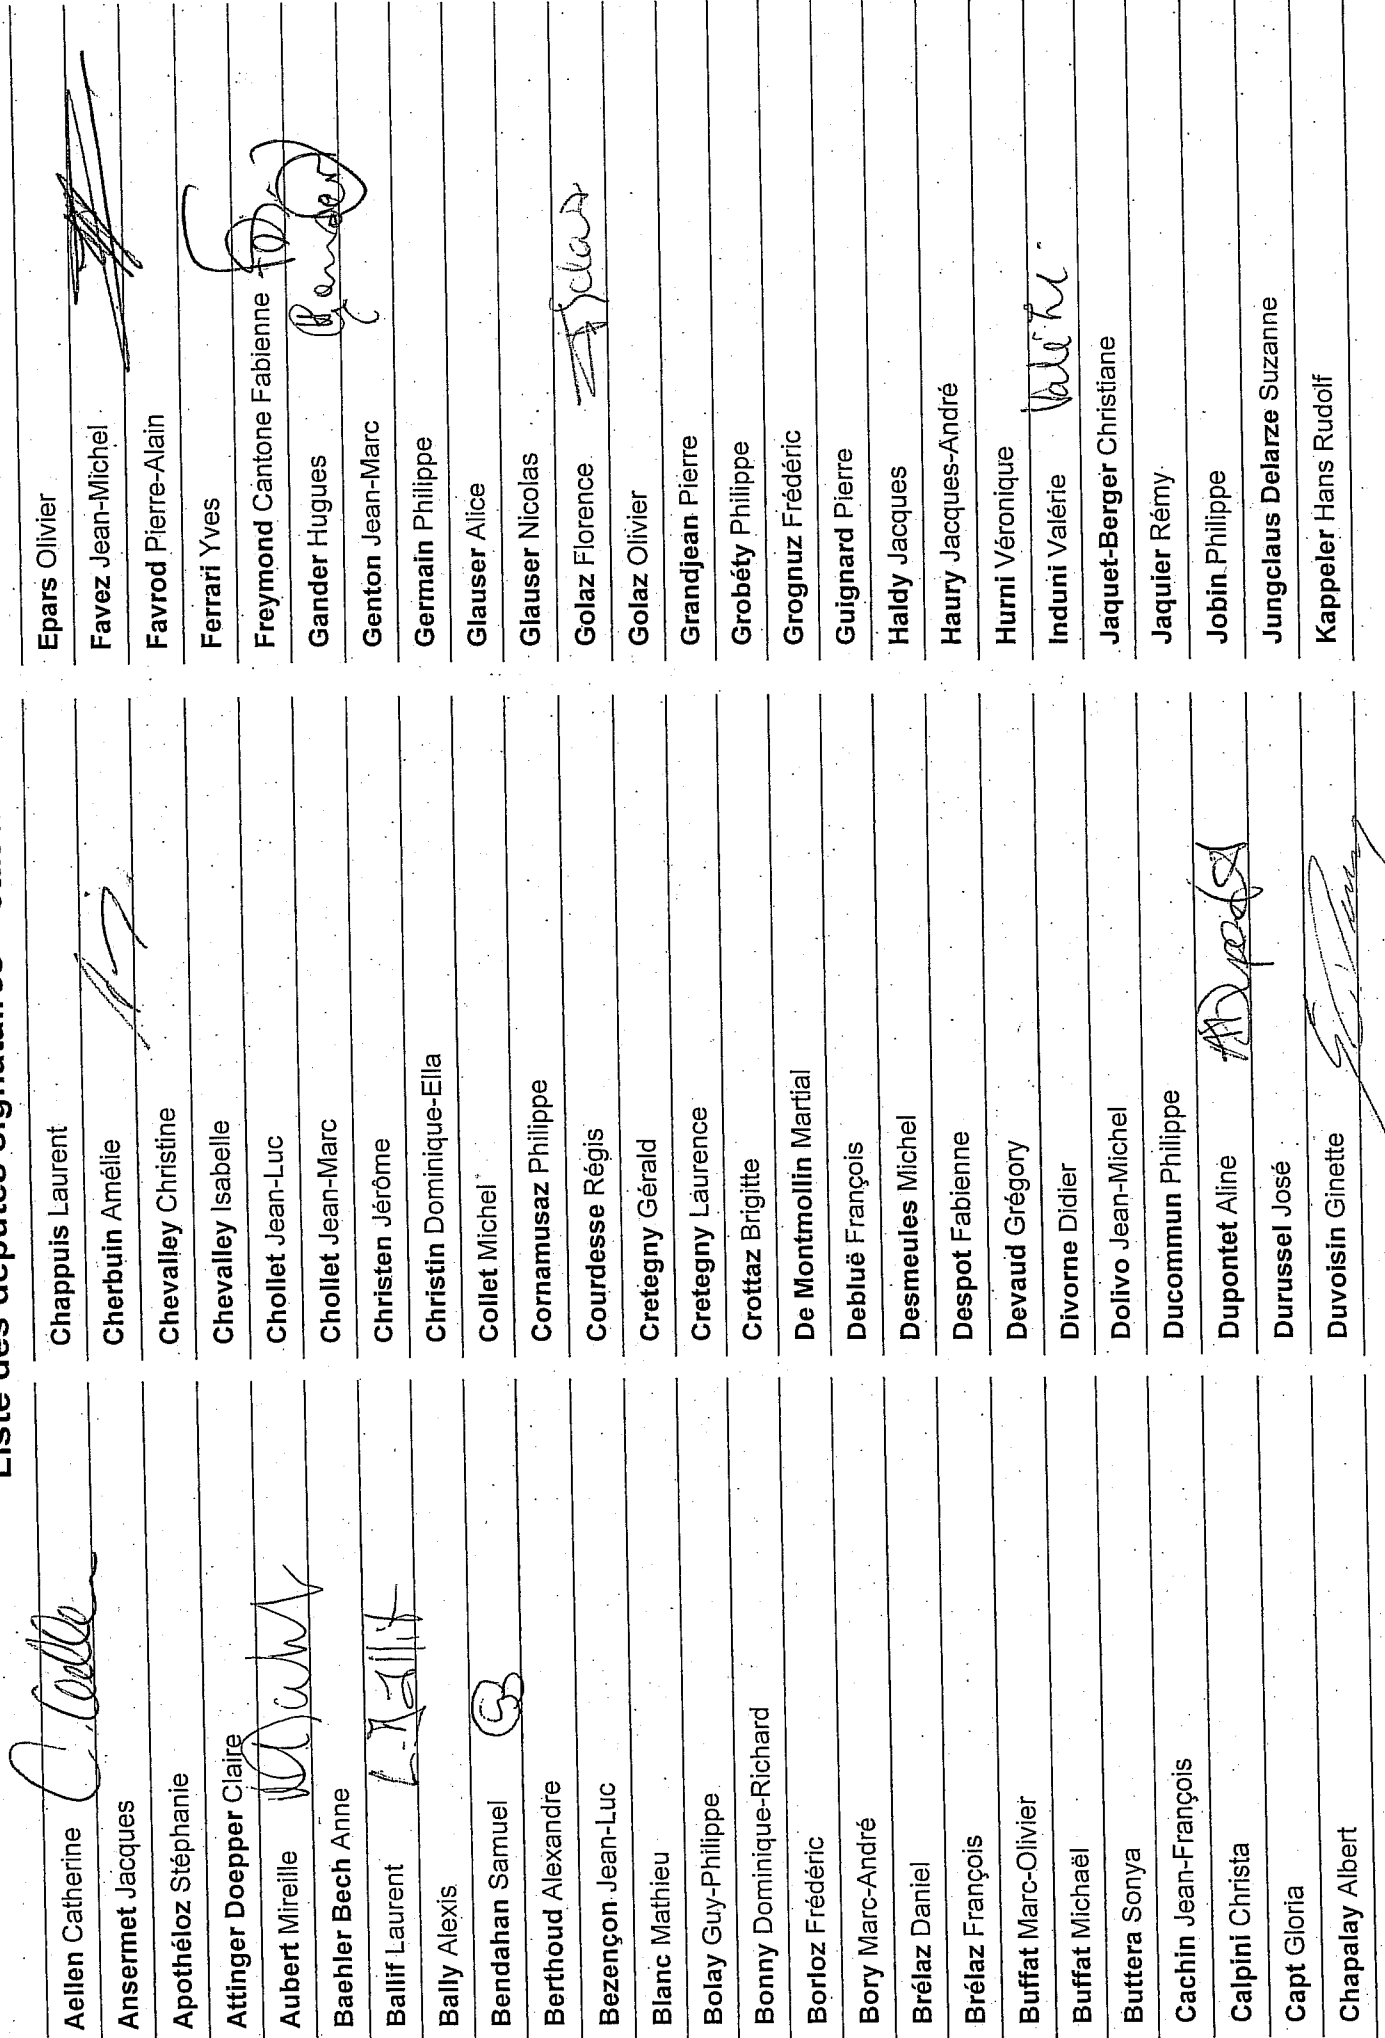 Liste des députés signataires
Aellen Catherine
Ansermet Jacques
Apothéloz Stéphanie
Attinger Doepper Claire
Aubert Mireille
Baehler Bech Anne
Ballif Laurent L. Ballif
Bally Alexis
Bendahan Samuel
Berthoud Alexandre
Bezençon Jean-Luc
Blanc Mathieu
Bolay Guy-Philippe
Bonny Dominique-Richard
Borloz Frédéric
Bory Marc-André
Brélaz Daniel
Brélaz François
Buffat Marc-Olivier
Buffat Michaël
Buttera Sonya
Cachin Jean-François
Calpini Christa
Capt Gloria
Chapalay Albert
Chappuis Laurent
Cherbuin Amélie
Chevalley Christine
Chevalley Isabelle
Chollet Jean-Luc
Chollet Jean-Marc
Christen Jérôme
Christin Dominique-Ella
Collet Michel
Cornamusaz Philippe
Courdesse Régis
Cretegny Gérald
Cretegny Laurence
Crottaz Brigitte
De Montmollin Martial
Debluë François
Desmeules Michel
Despot Fabienne
Devaud Grégory
Divorne Didier
Dolivo Jean-Michel
Ducommun Philippe
Dupontet Aline
Durussel José
Duvoisin Ginette
Epars Olivier
Favez Jean-Michel
Favrod Pierre-Alain
Ferrari Yves
Freymond Cantone Fabienne
Gander Hugues
Genton Jean-Marc
Germain Philippe
Glauser Alice
Glauser Nicolas
Golaz Florence
Golaz Olivier
Grandjean Pierre
Grobéty Philippe
Grognuz Frédéric
Guignard Pierre
Haldy Jacques
Haury Jacques-André
Hurni Véronique
Induni Valérie
Jaquet-Berger Christiane
Jaquier Rémy
Jobin Philippe
Jungclaus Delarze Suzanne
Kappeler Hans Rudolf